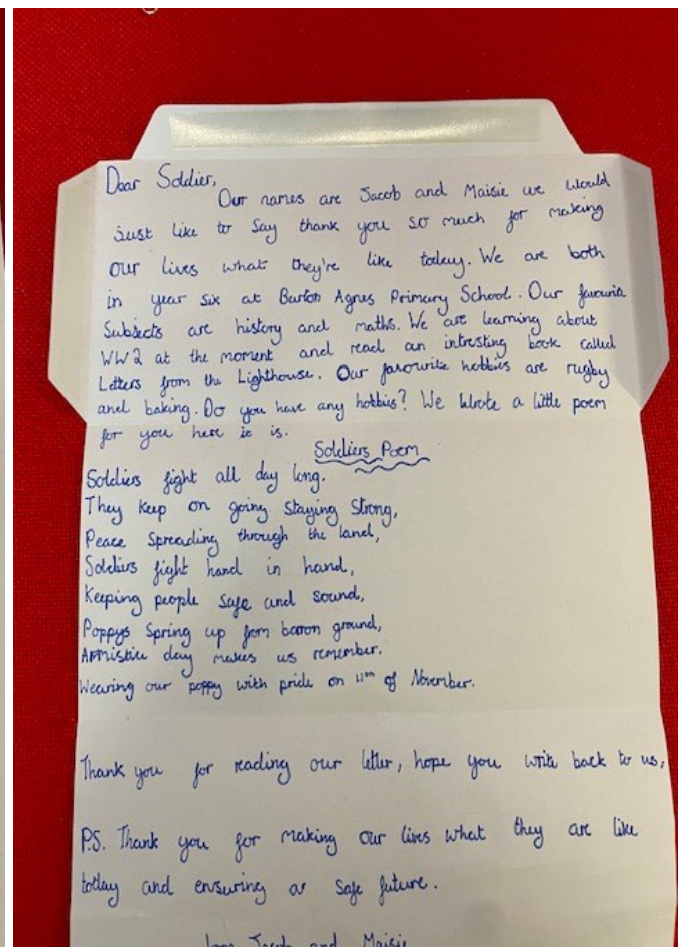 Dear Soldier,
Our names are Jacob and Maisie we would
just like to say thank you so much for making
our lives what they're like today. We are both
in year six at Burton Agnes Primary School. Our favourite
Subjects are history and maths. We are learning about
WW2 at the moment and read an intresting book called
Letters from the Lighthouse. Our favourite hobbies are rugby
and baking. Do you have any hobbies? We wrote a little poem
for you here it is.
Soldiers Poem
Soldiers fight all day long.
They keep on going staying strong,
Peace spreading through the land,
Soldiers fight hand in hand,
Keeping people safe and sound,
Poppys spring up from barron ground,
Armistice day makes us remember.
Wearing our poppy with pride on 11th of November.
Thank you for reading our letter, hope you write back to us,
P.S. Thank you for making our lives what they are like
today and ensuring a safe future.
Jacob and Maisie